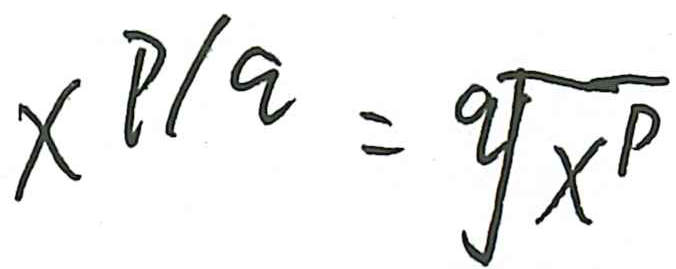 x^{p/q} = \sqrt[q]{x^p}